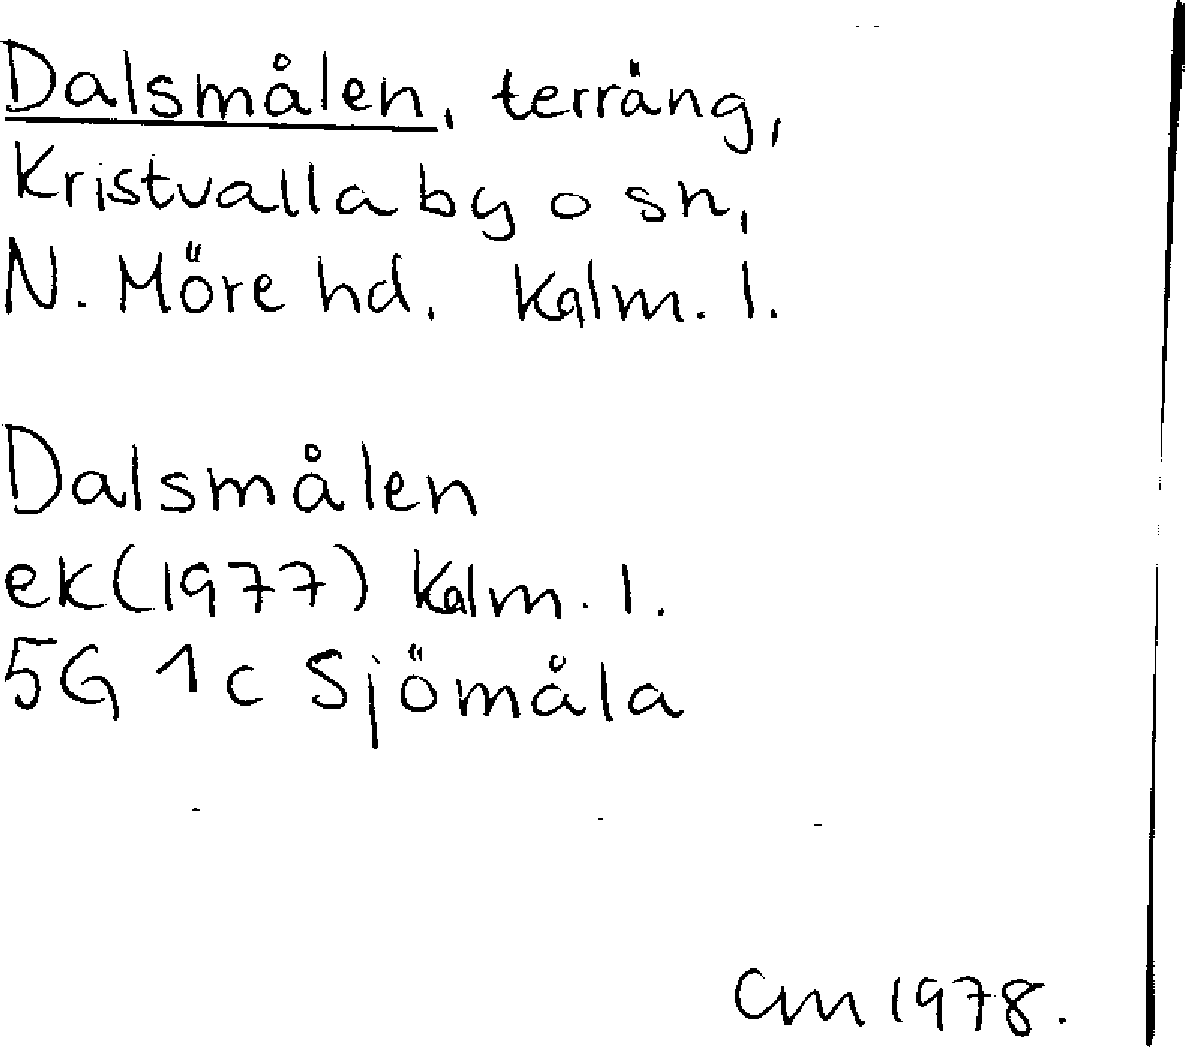 Dalsmålen, terräng,
Kristvalla by o sn,
N. Möre hd. Kalm. l.
Dalsmålen
ek(1977) Kalm. l.
5G 1c Sjömåla
Cm 1978.